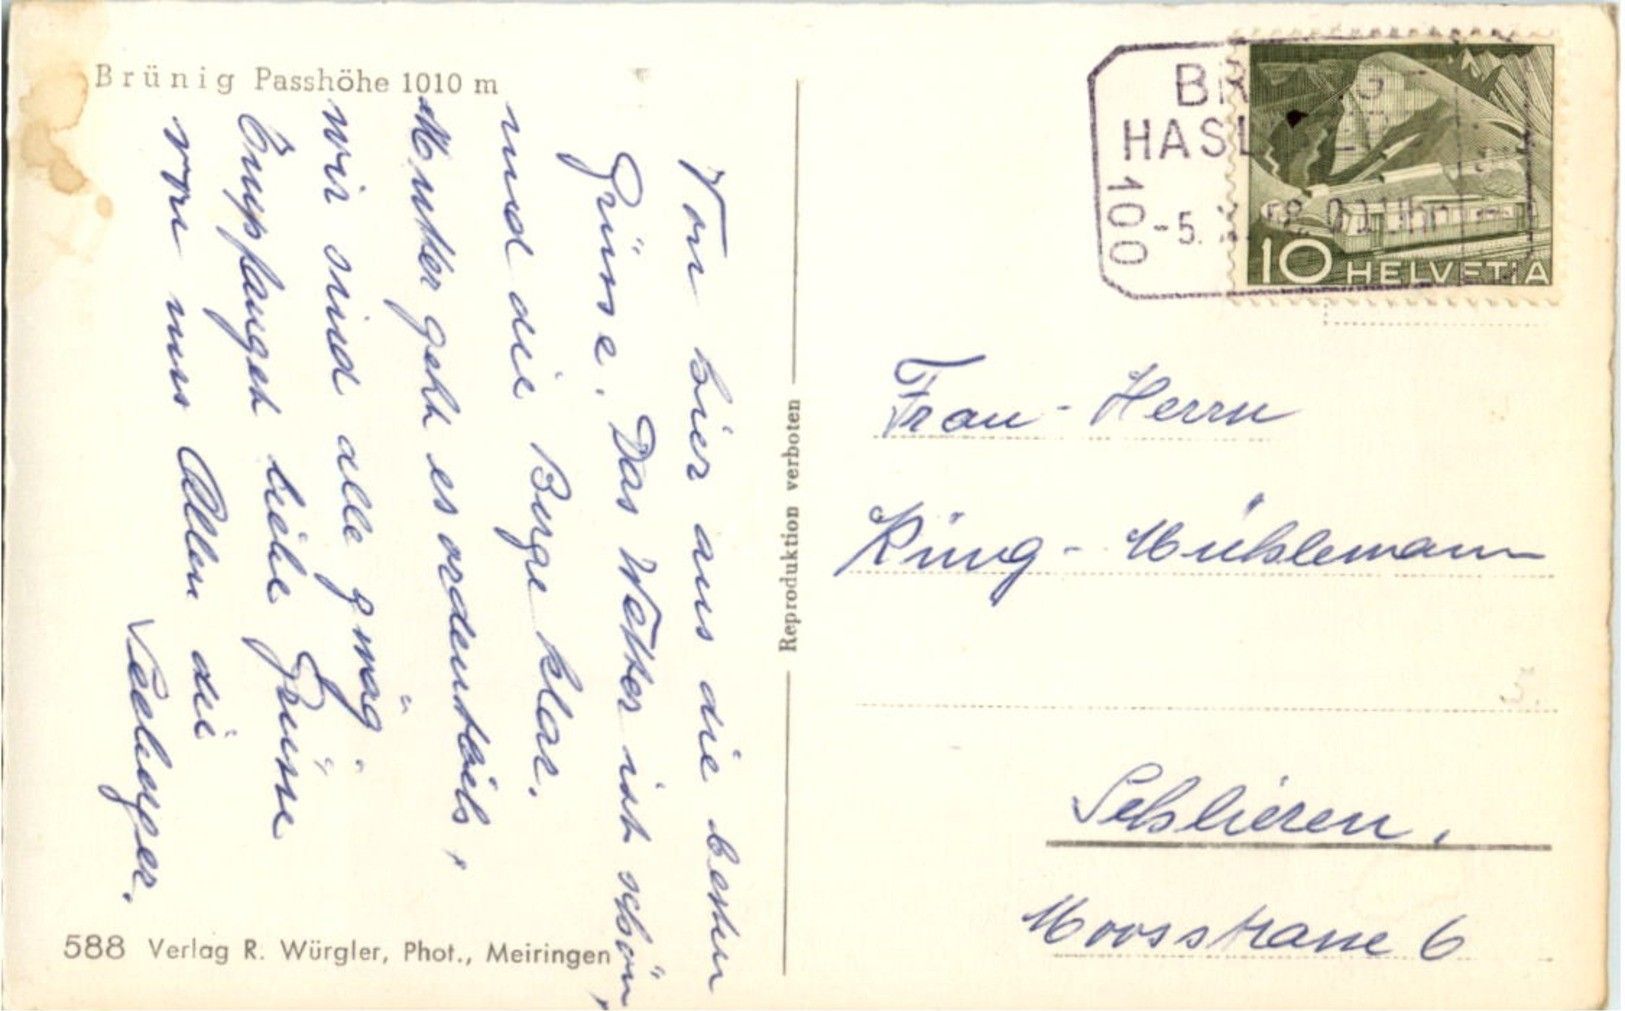 Brünig Passhöhe 1010 m
Von hier aus die besten
Grüsse. Das Wetter ist schön,
und die Berge klar.
Mutter geht es ordentlich,
wir sind alle g'wäg
Empfanget liebe Grüsse
von uns Allen die
HASL
100
-5.
10 HELVETIA
Reproduktion verboten
Frau - Herrn
Küng - Mühlemann
Schlieren.
Moosstrasse 6
588 Verlag R. Würgler, Phot., Meiringen